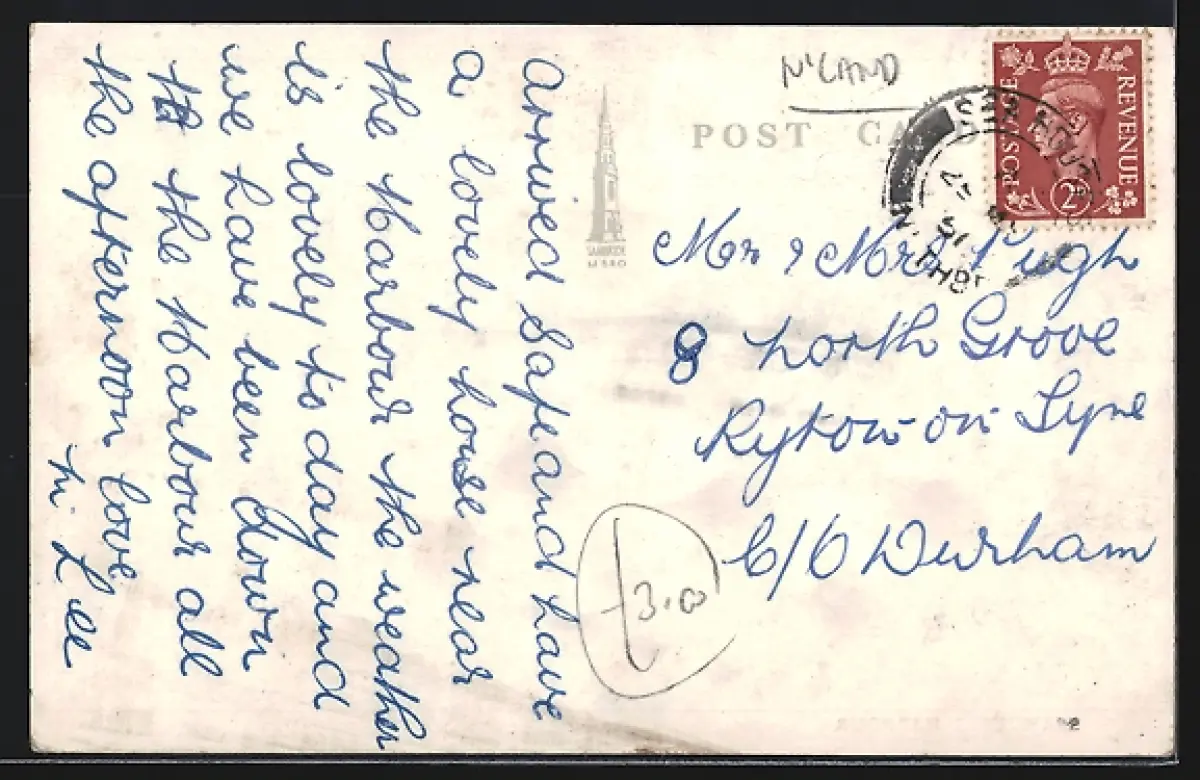 Arrived Safe and have
a lovely house near
the Harbour the weather
is lovely to day and
we have been down
th the Harbour all
the afternoon love
M. Lee
N'LAND
POST CARD
POSTAGE
REVENUE
2D
SEAHOUSES
51
Mr & Mrs Pugh
8 North Grove
Ryton on Tyne
C/O Durham
3.00